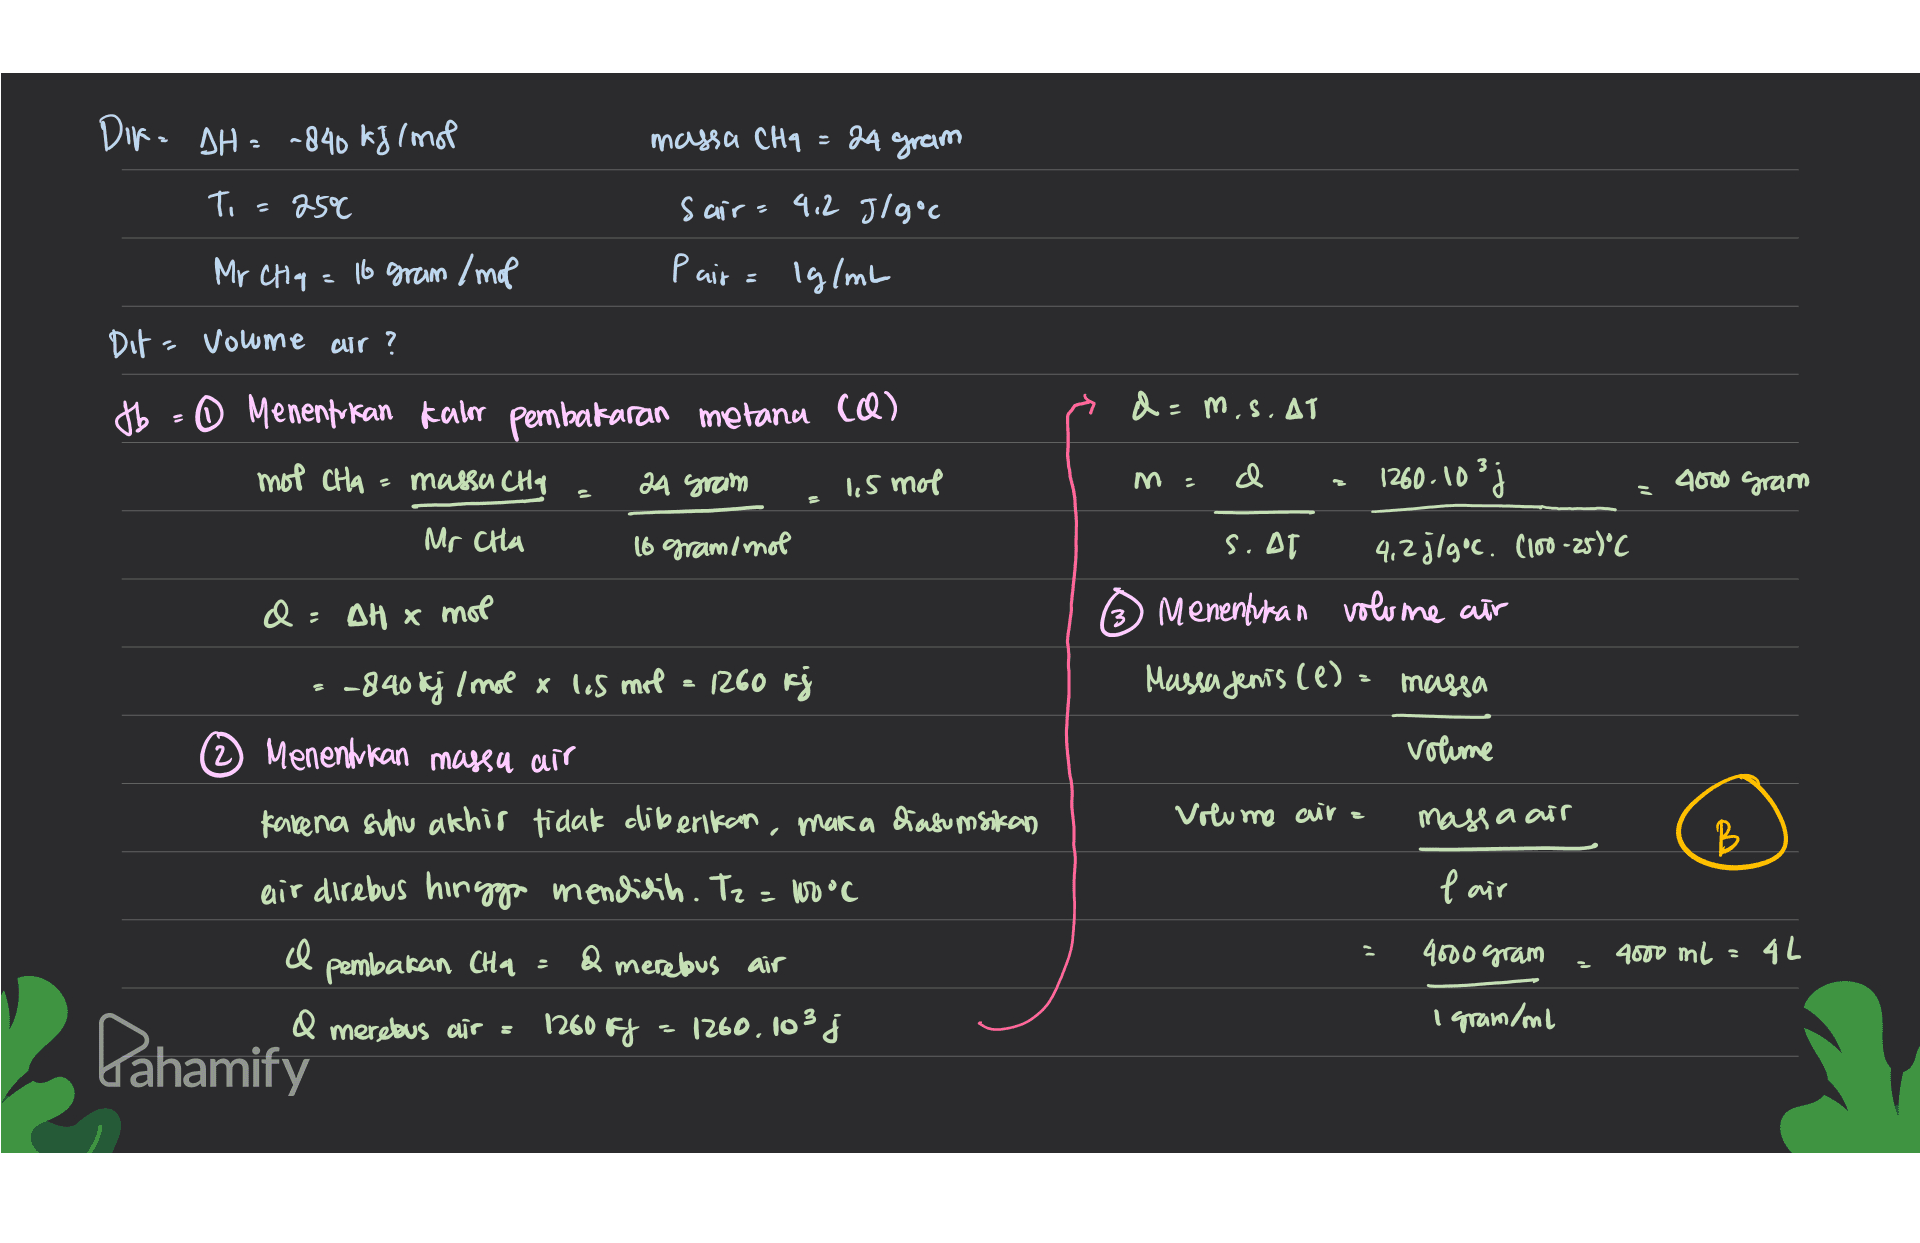 Dik = ΔH = -840 kJ/mol massa CH4 = 24 gram
T1 = 25°C S air = 4,2 J/g°C
Mr CH4 = 16 gram/mol P air = 1g/mL
Dit = Volume air ?
Jb = ① Menentukan kalor pembakaran metana (Q)
mol CH4 = massa CH4 / Mr CH4 = 24 gram / 16 gram/mol = 1,5 mol
Q = ΔH x mol
= -840 kj/mol x 1,5 mol = 1260 kj
② Menentukan massa air
karena suhu akhir tidak diberikan, maka diasumsikan
air direbus hingga mendidih. T2 = 100°C
Q pembakan CH4 = Q merebus air
Q merebus air = 1260 kj = 1260.10³ j
Q = m.s.ΔT
m = Q / s.ΔT = 1260.10³ j / 4,2 j/g°C. (100-25)°C = 4000 gram
③ Menentukan volume air
Massa jenis (ρ) = massa / volume
Volume air = massa air / ρ air
B
= 4000 gram / 1 gram/ml = 4000 mL = 4 L
Pahamify